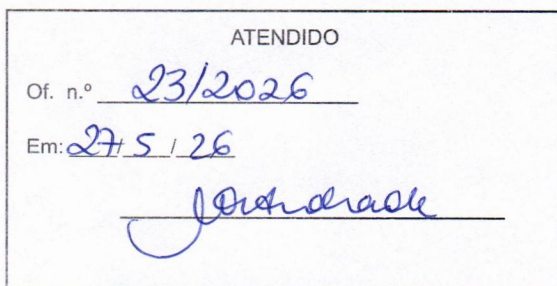 ATENDIDO
Of. n.º 23/2026
Em: 27/ 5 / 26